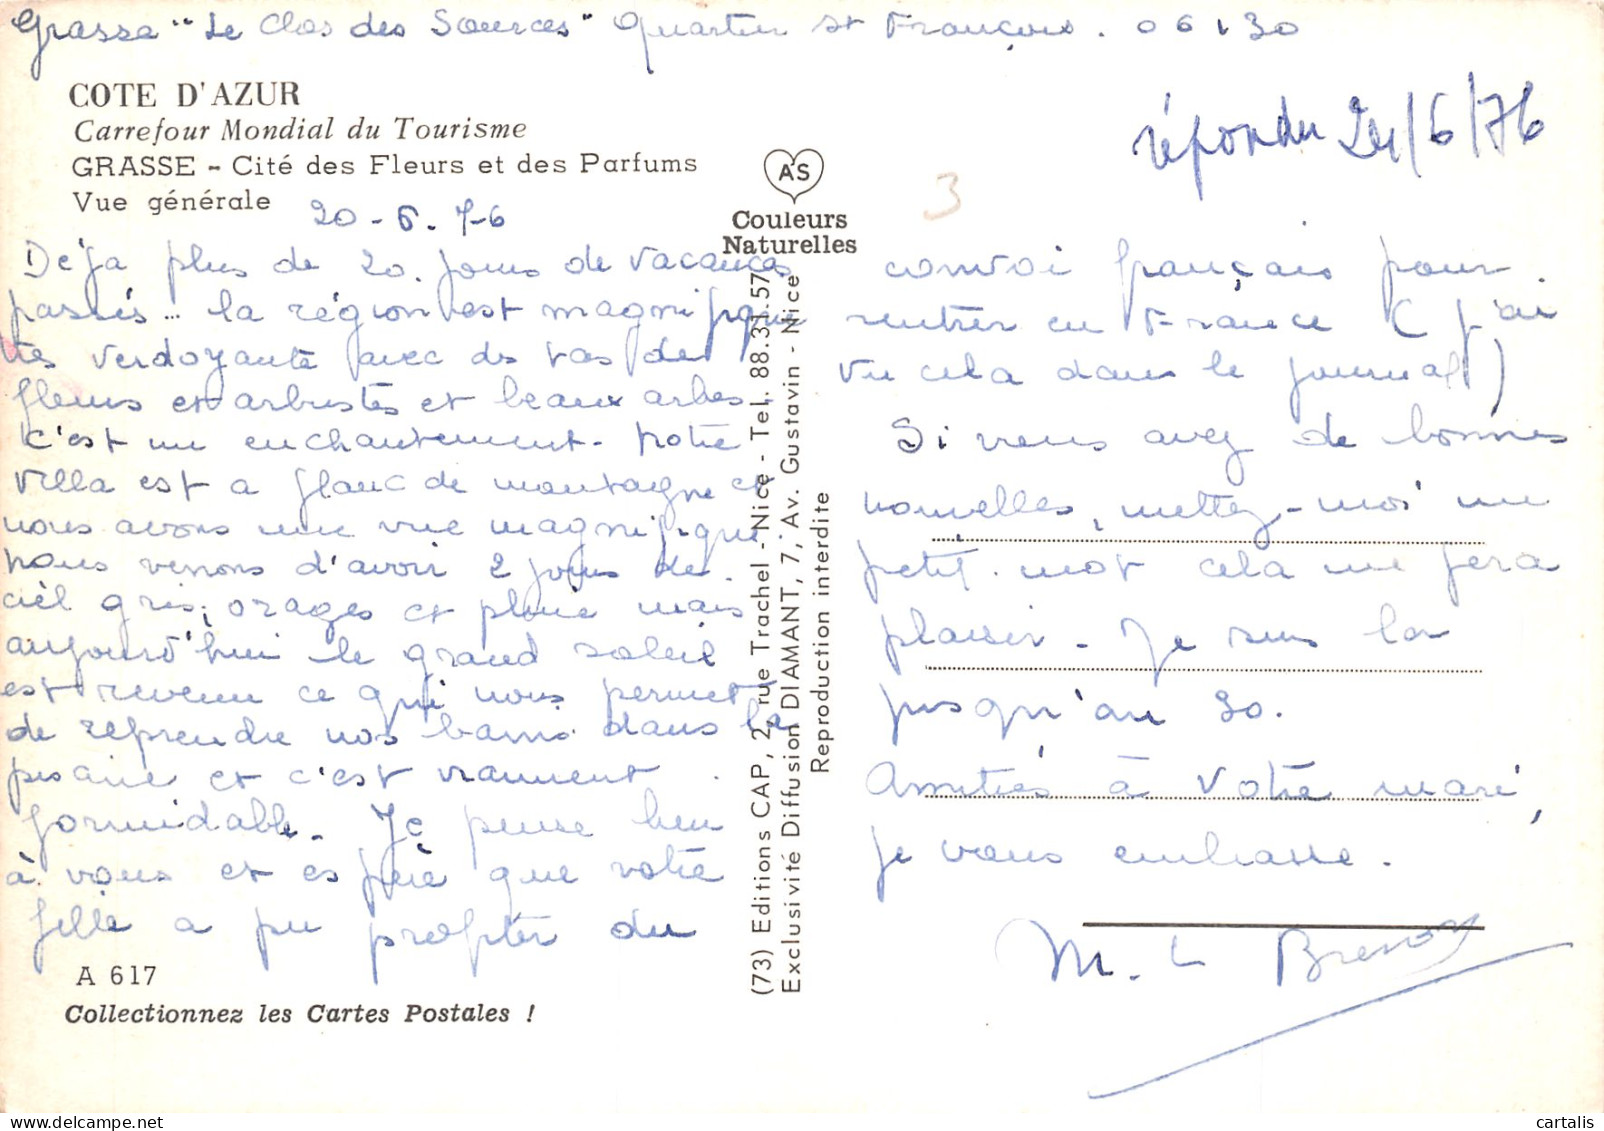 Grasse "Le Clos des Sources" Quartier St François. 06130
COTE D'AZUR
Carrefour Mondial du Tourisme
GRASSE - Cité des Fleurs et des Parfums
Vue générale
20-6.76
Déja plus de 20 jours de vacances
passés... la région est magnifique
très verdoyante avec des tas de
fleurs et arbustes et beaux arbres -
C'est un enchantement - notre
villa est a flanc de montagne et
nous avons une vue magnifique
nous venons d'avoir 2 jours de
ciel gris, orages et pluie mais
aujourd'hui le grand soleil
est revenu ce qui nous permet
de reprendre nos bains dans la
piscine et c'est vraiment
formidable. Je pense bien
à vous et espère que votre
fille a pu profiter du
A 617
Collectionnez les Cartes Postales !
AS
Couleurs
Naturelles
(73) Editions CAP, 2, rue Trachel - Nice - Tel. 88.31.57
Exclusivité Diffusion DIAMANT, 7, Av. Gustavin - Nice
Reproduction interdite
répondu 24/6/76
3
convoi français pour
rentrer en France (j'ai
vu cela dans le journal)
Si vous avez de bonnes
nouvelles, mettez-moi un
petit mot cela me fera
plaisir - Je suis là
jusqu'au 30.
Amitiés à votre mari,
je vous embrasse.
M. L
cartalis